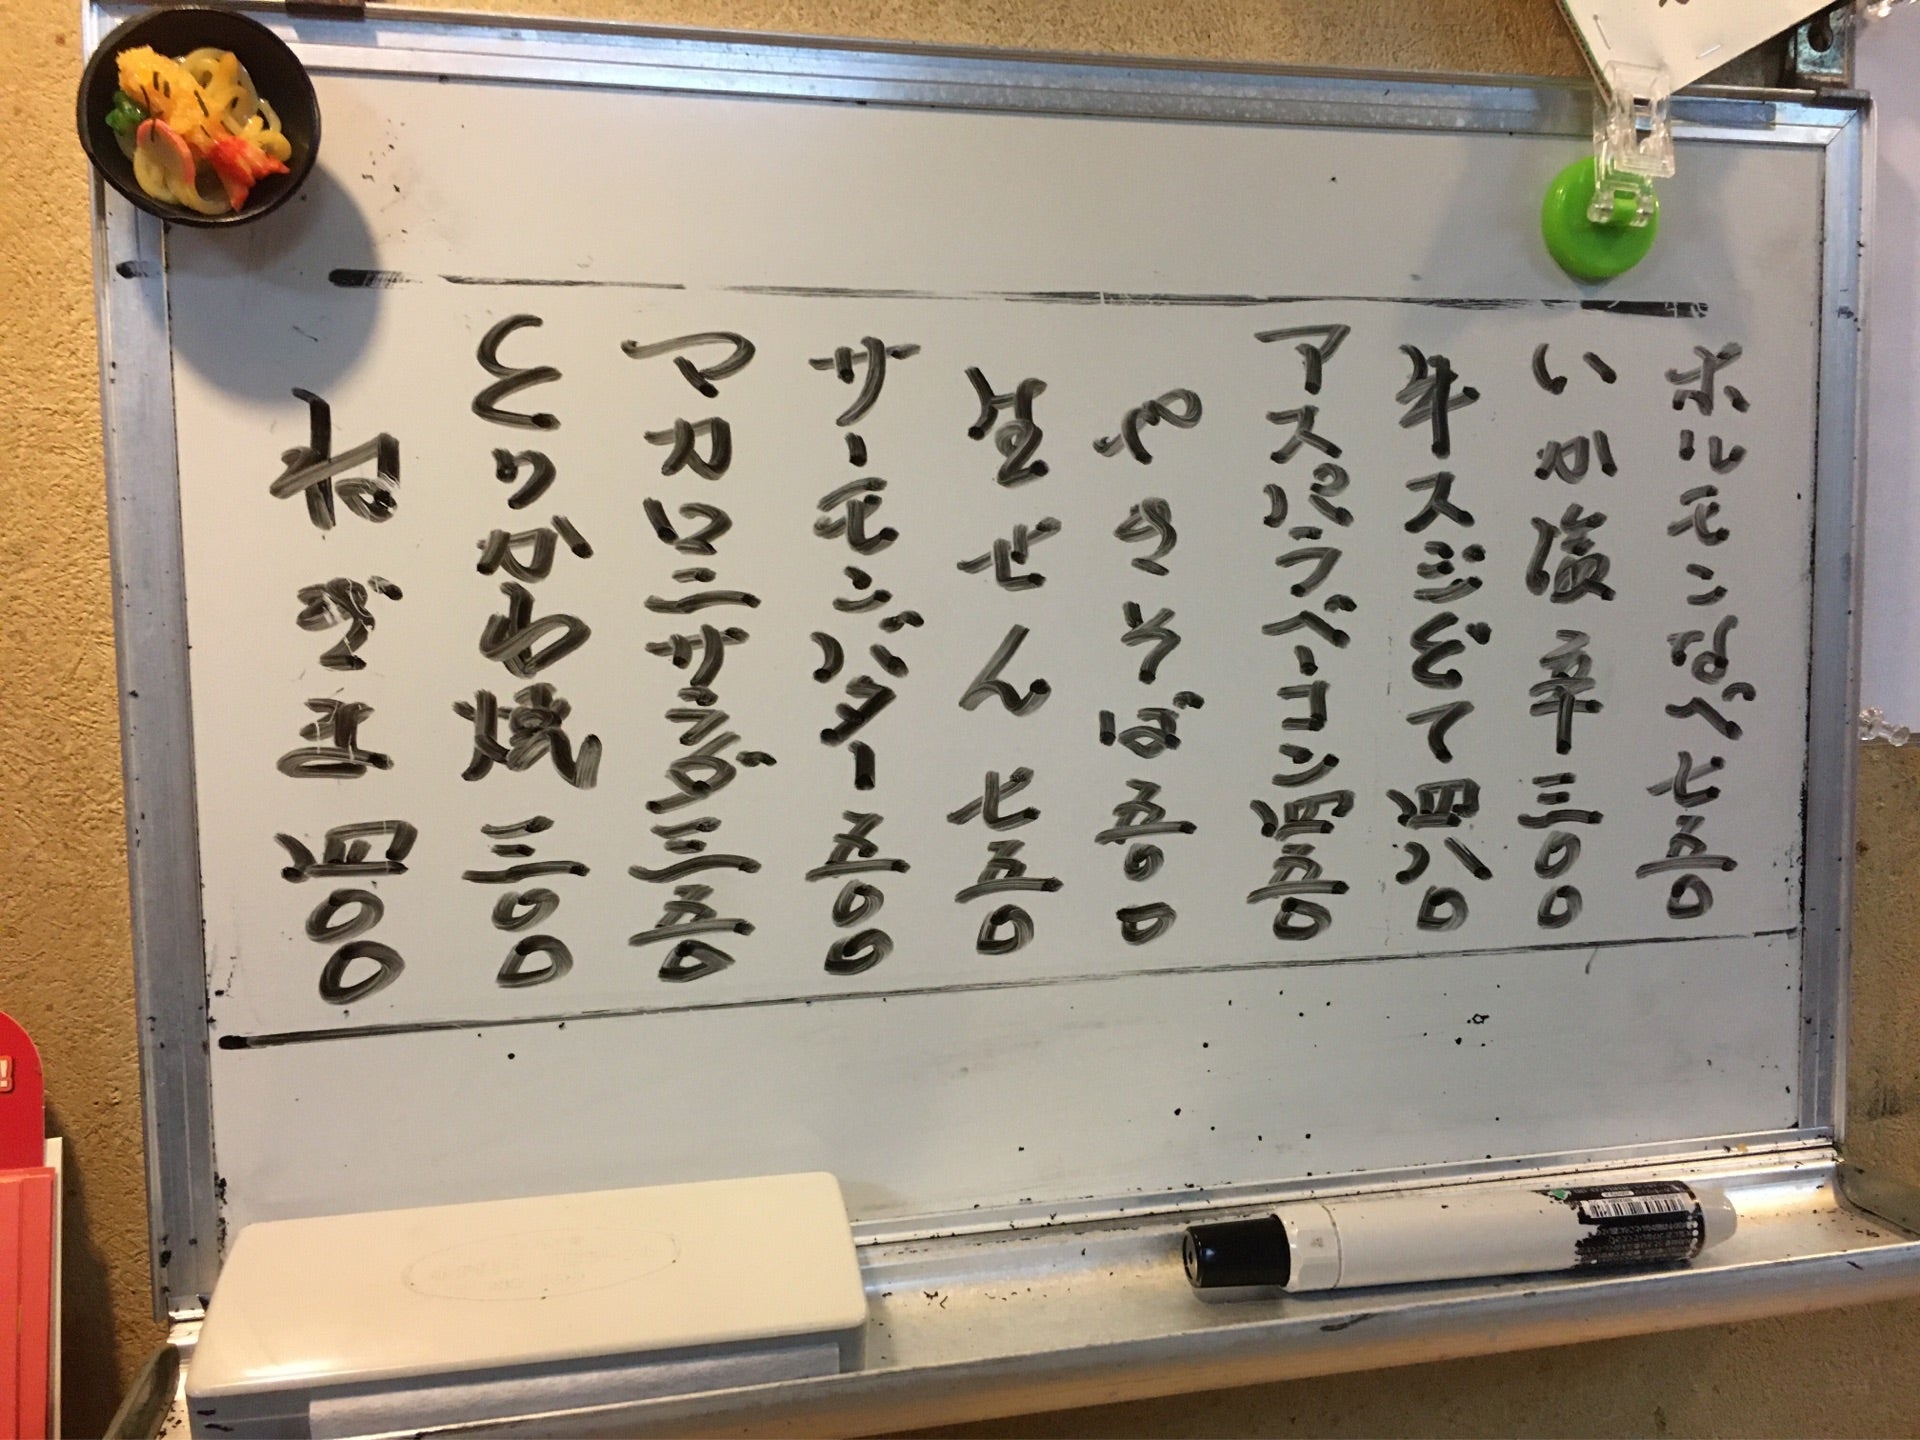 ホルモンなべ七五〇
いか塩辛三〇〇
牛スジどて四八〇
アスパラベーコン四五〇
やきそば五〇〇
生せん七五〇
サーモンバター五〇〇
マカロニサラダ三五〇
とりかわ焼三〇〇
ねぎま四〇〇